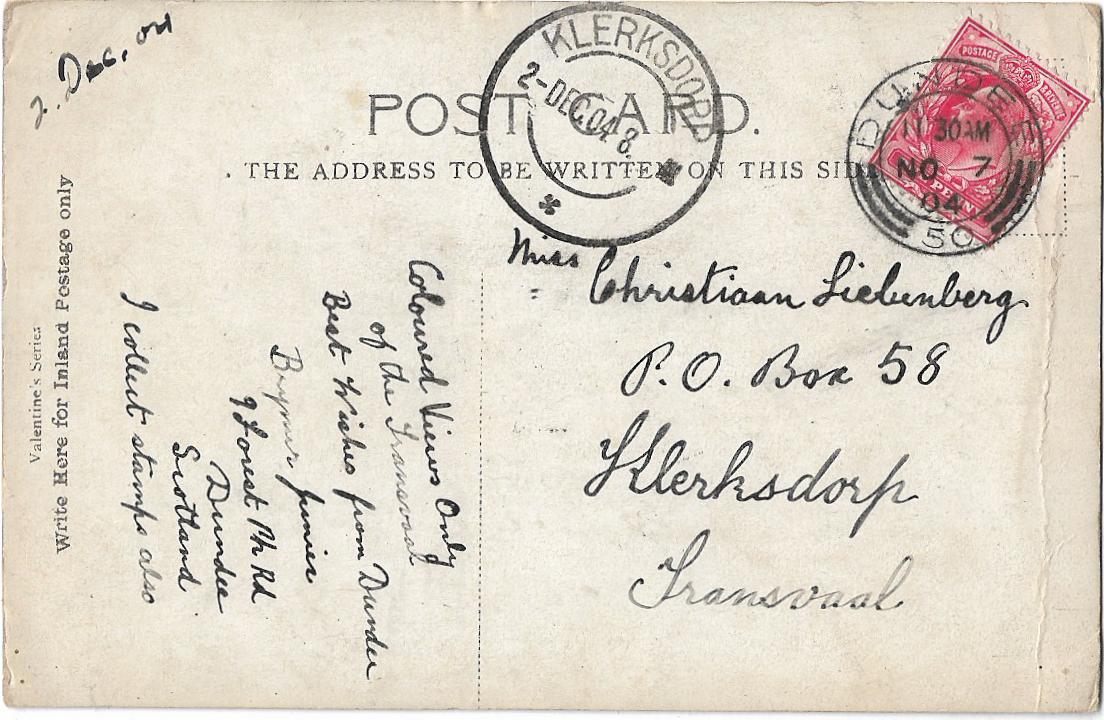 2. Dec. 04
POST CARD.
THE ADDRESS TO BE WRITTEN ON THIS SIDE
KLERKSDORP
2-DEC.04 8.
POSTAGE
PENNY
DUNDEE
11 30AM
NO 7
04
50
Valentine's Series
Write Here for Inland Postage only
Coloured Views Only
of the Transvaal
Best Wishes from Dundee
Junier
9 Forest Pk Rd
Dundee
Scotland
I collect stamps also
Miss Christiaan Liebenberg
P.O. Box 58
Klerksdorp
Transvaal